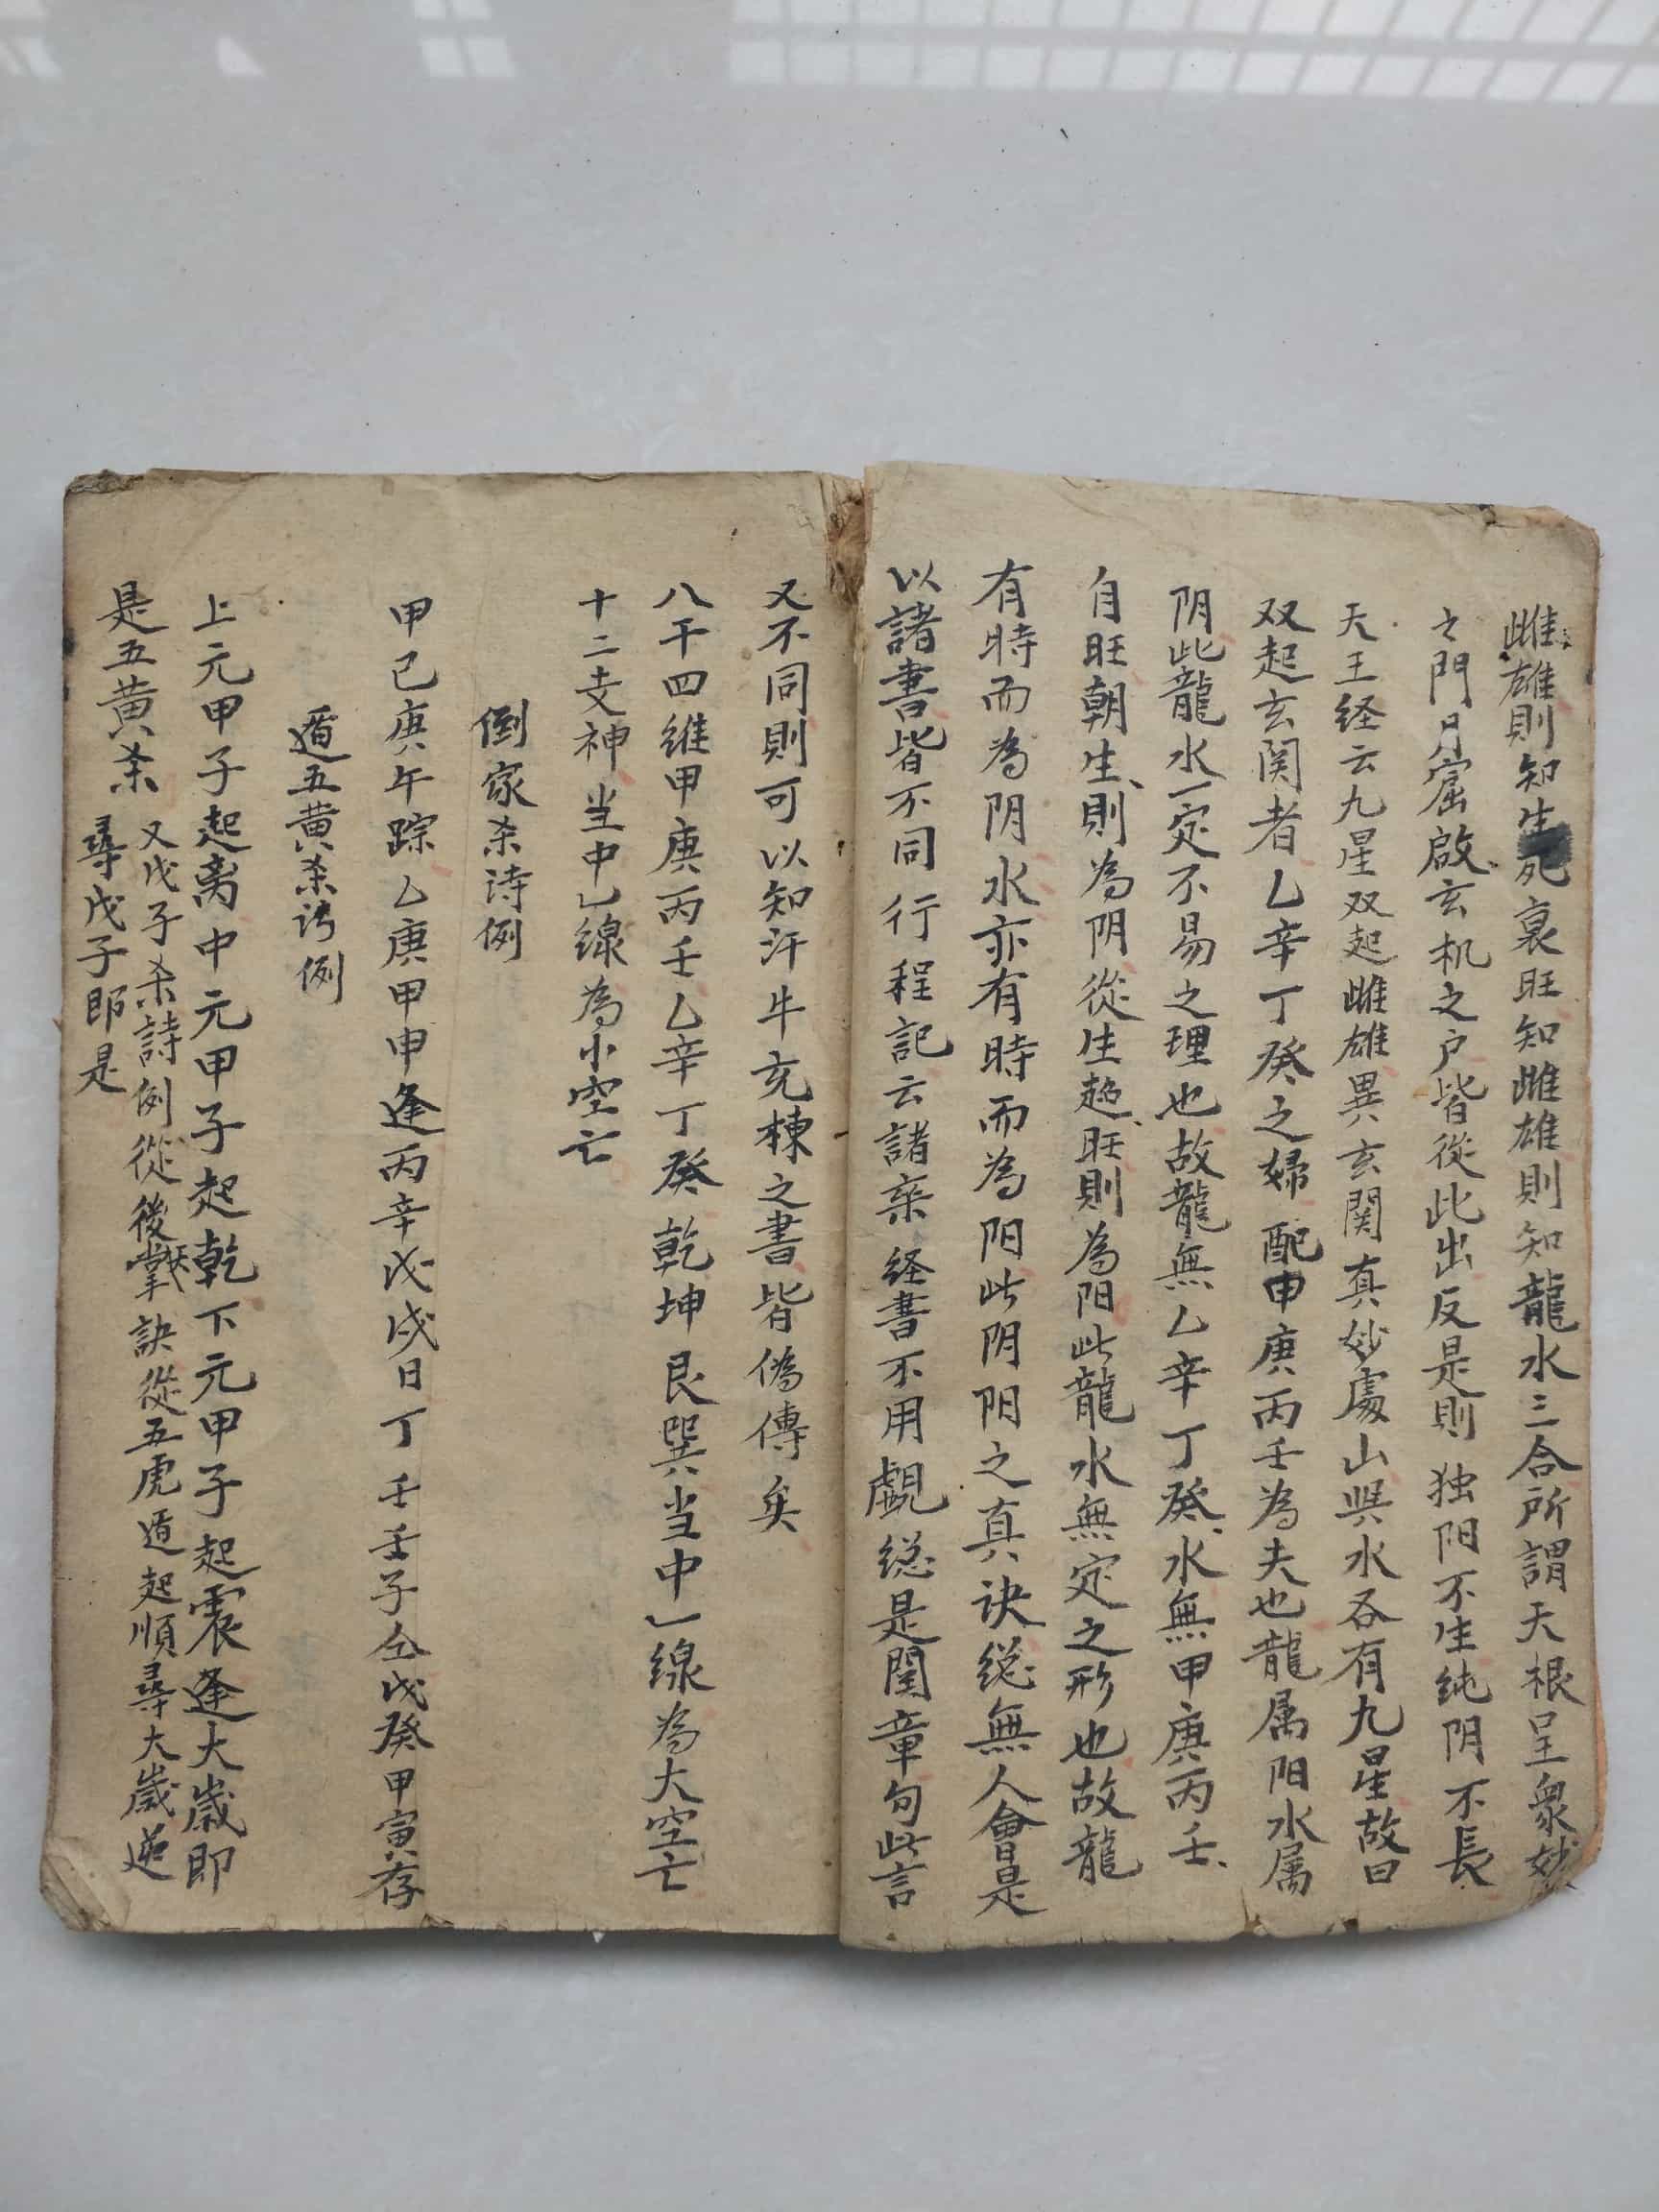 雌雄則知生死衰旺知雌雄則知龍水三合所謂天根呈衆妙
之門月窟啟玄机之户皆從此出反是則独阳不生純阴不長
天王经云九星双起雌雄異玄関真妙處山與水各有九星故曰
双起玄関者乙辛丁癸之婦配甲庚丙壬為夫也龍属阳水属
阴此龍水一定不易之理也故龍無乙辛丁癸水無甲庚丙壬
自旺朝生則為阴從生趋旺則為阳此龍水無定之形也故龍
有時而為阴水亦有時而為阳此阴阳之真诀総無人會是
以諸書皆不同行程記云諸葉经書不用覷総是閏章句此言
又不同則可以知汗牛充棟之書皆偽傳矣
八干四維甲庚丙壬乙辛丁癸乾坤艮巽当中一線為大空亡
十二支神当中一線為小空亡
倒家杀诗例
甲己庚午踪乙庚甲申逢丙辛戊戌日丁壬壬子仝戊癸甲寅存
遁五黄杀诗例
上元甲子起离中元甲子起乾下元甲子起震逢大歲即
是五黄杀
又戊子杀詩例從後掌訣從五虎遁起順尋大歲逆
尋戊子即是